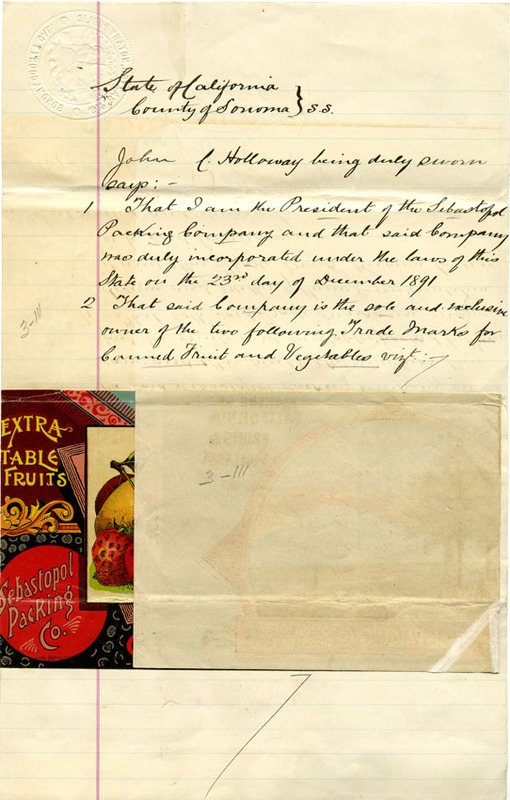 State of California
County of Sonoma } s.s.
John C. Holloway being duly sworn
says: -
1 That I am the President of the Sebastopol
Packing Company and that said Company
was duly incorporated under the laws of this
State on the 23rd day of December 1891
2 That said Company is the sole and exclusive
owner of the two following Trade Marks for
Canned Fruit and Vegetables vizt: -
3-111
EXTRA
TABLE
FRUITS
3-111
Sebastopol
Packing
Co.